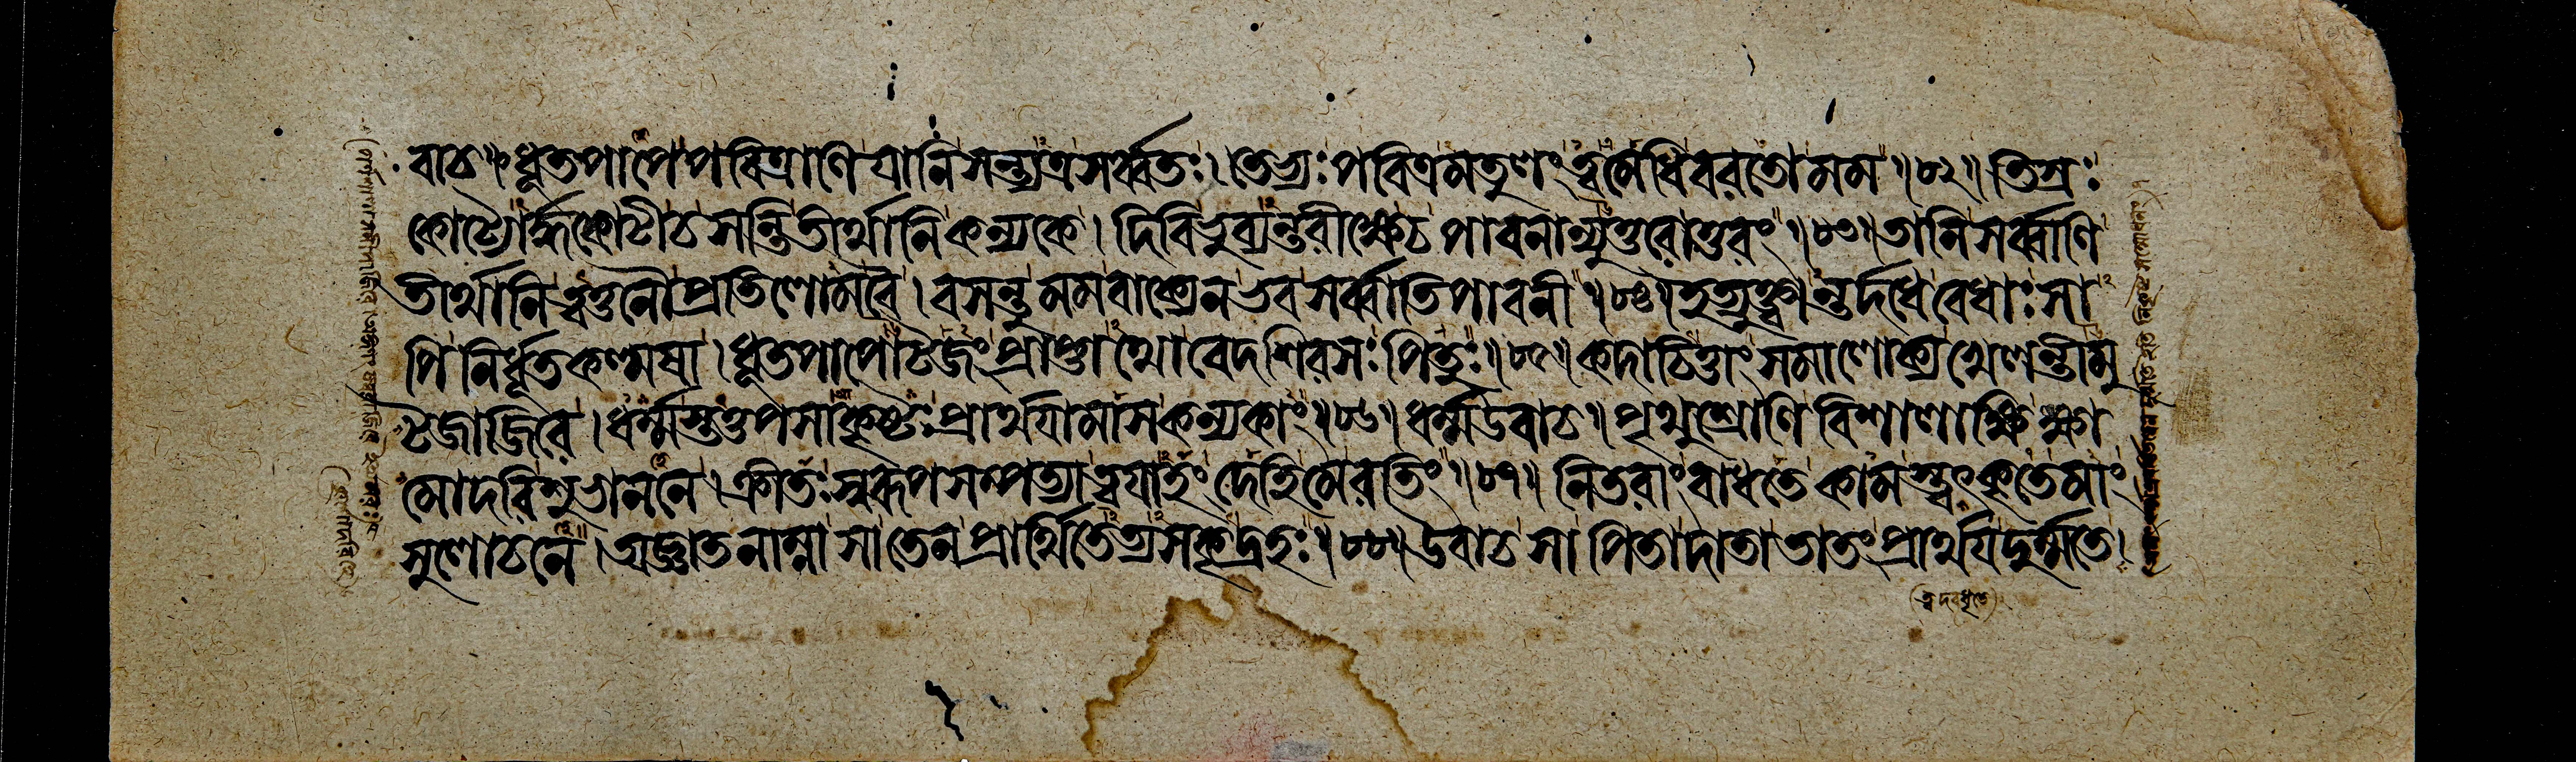 বাচ ॥ ধূতপাপে পবিত্রাণি যানি সন্ত্যত্র সর্ব্বতঃ । তেভ্যঃ পবিত্রমতুলং ত্বমেধি বরতো মম ॥ ৮২ ॥ তিস্রঃ
কোট্যোর্দ্ধকোটী চ সন্তি তীর্থানি কন্যকে । দিবি ভুব্যন্তরীক্ষে চ পাবনান্যুত্তরোত্তরং ॥ ৮৩ ॥ তানি সর্ব্বাণি
তীর্থানি ত্বত্তনৌ প্রতিলোম বৈ । বসন্তু মম বাক্যেন ভব সর্ব্বাতিপাবনী ॥ ৮৪ ॥ ইত্যুক্ত্বান্তর্দ্দধে বেধাঃ সা
পি নির্ধূতকল্মষা । ধূতপাপোটজং প্রাপ্তাথো বেদশিরসঃ পিতুঃ ॥ ৮৫ ॥ কদাচিত্তাং সমালোক্য খেলন্তীমু
টজাজিরে । ধর্ম্মস্তত্তপসাকৃষ্টঃ প্রার্থযামাস কন্যকাং ॥ ৮৬ ॥ ধর্ম্ম উবাচ ॥ পৃথুশ্রোণি বিশালাক্ষি ক্ষা
মোদরি শুভাননে । ক্রীতঃ স্বরূপসম্পত্ত্যা ত্বযাহং দেহি মে রতিং ॥ ৮৭ ॥ নিতরাং বাধতে কামস্ত্বৎকৃতে মাং
সুলোচনে । অজ্ঞাতনাম্না সা তেন প্রার্থিতেত্যসকৃদ্রহঃ ॥ ৮৮ ॥ উবাচ সা পিতা দাতা তাতং প্রার্থয দুর্ম্মতে ।